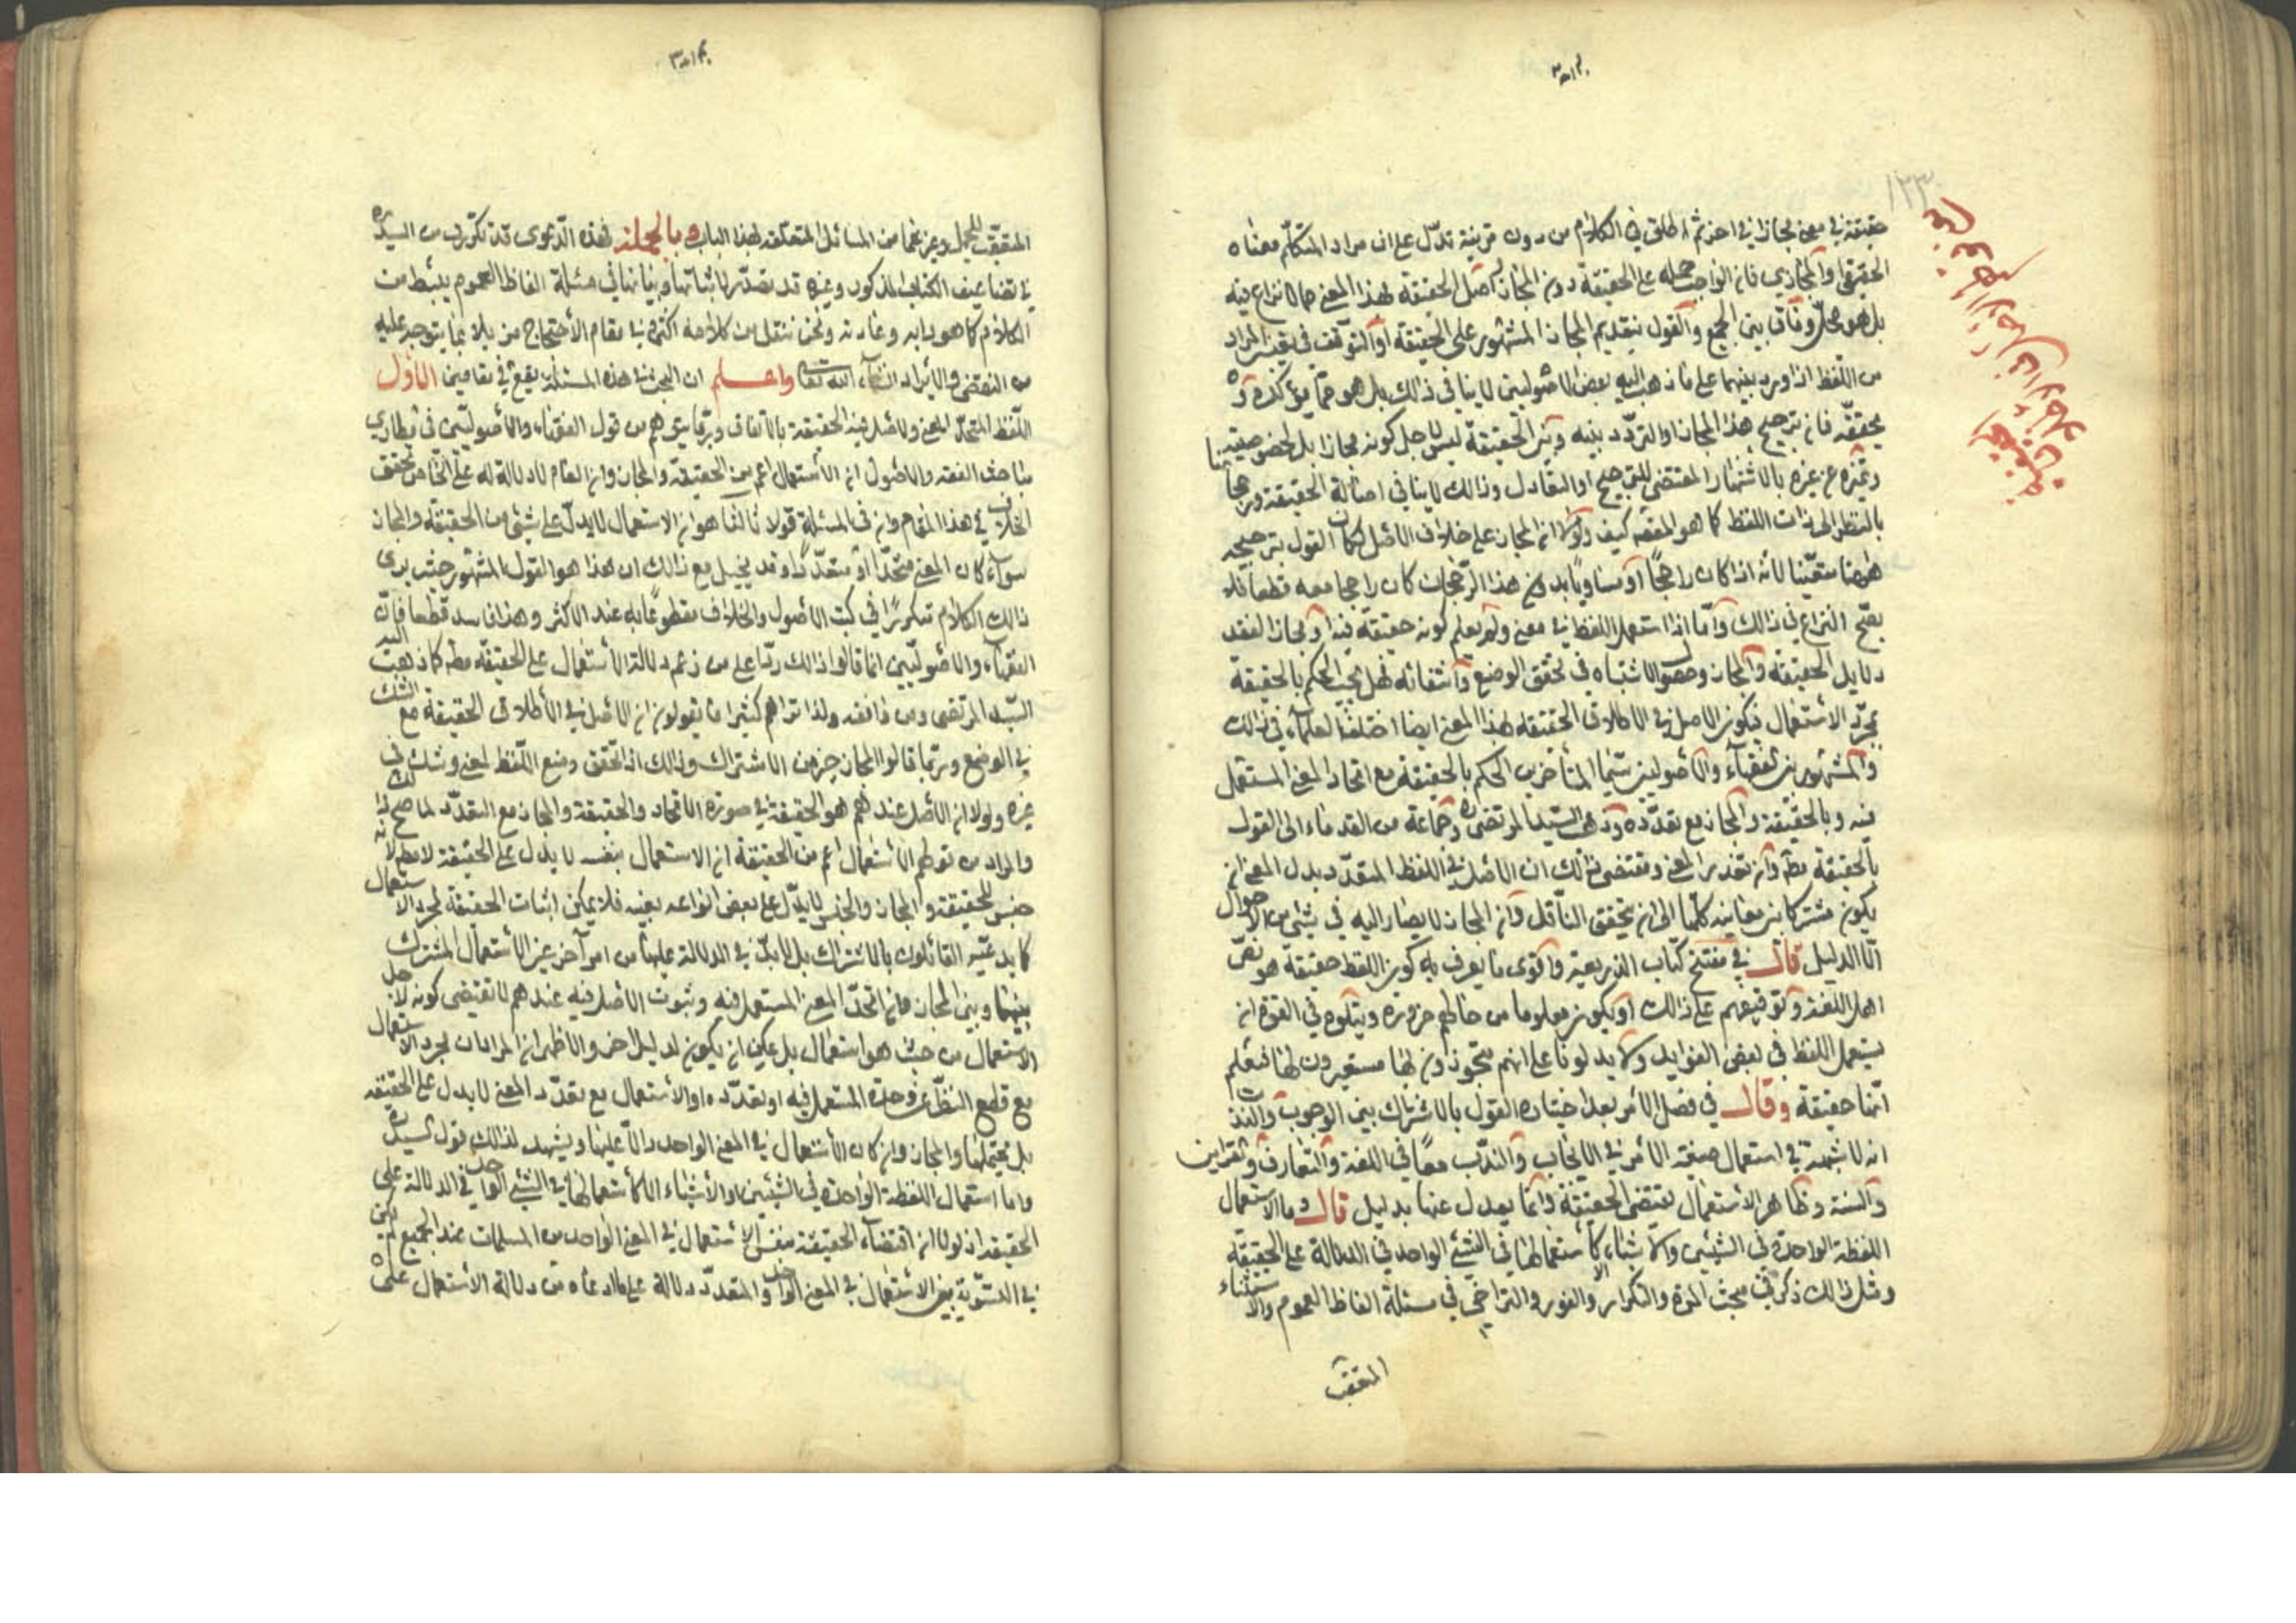 حقيقة في معنى مجازا في اخر ثم اطلق في الكلام من دون قرينة تدل على ان مراد المتكلم معناه
الحقيقي او المجازي فان الواجب حمله على الحقيقة دون المجاز اصل الحقيقة لهذا المعنى مما لا نزاع فيه
بل هو محل وفاق بين الجميع والقول بتقديم المجاز المشهور على الحقيقة او التوقف في تعيين المراد
من اللفظ اذا ورد بينهما على ما ذهب اليه بعض الاصوليين لا ينافي ذلك بل هو مما يؤكده و
يحققه فان ترجيح هذا المجاز او التردد بينه وبين الحقيقة ليس لاجل كونه مجازا بل لخصوصيته
وتميزه عن غيره بالاشتهار المقتضي للترجيح او التعادل وذلك لا ينافي اصالة الحقيقة ورجحانها
بالنظر الى ذات اللفظ كما هو المقصد كيف ولولا ان المجاز على خلاف الاصل لكان القول بترجيحه
هاهنا متعينا لانه اذا كان راجحا او مساويا بدون هذا الرجحان كان راجحا معه قطعا فلا
يصح النزاع في ذلك واما اذا استعمل اللفظ في معنى ولم يعلم كونه حقيقة فيه او مجازا لفقد
دلايل الحقيقة والمجاز وحصول الاشتباه في تحقق الوضع وانتفائه فهل يجب الحكم بالحقيقة
بمجرد الاستعمال فيكون الاصل في الاطلاق الحقيقة بهذا المعنى ايضا اختلف العلماء في ذلك
والمشهور بين الفقهاء والاصوليين سيما المتأخرين الحكم بالحقيقة مع اتحاد المعنى المستعمل
فيه وبالحقيقة والمجاز مع تعدده وذهب السيد المرتضى ره وجماعة من القدماء الى القول
بالحقيقة مطم وان تعدد المعنى ومقتضى ذلك ان الاصل في اللفظ المتعدد بدل المعنى ان
يكون مشتركا بين معانيه كلها الى ان يتحقق الناقل وان المجاز لا يصار اليه في شئ من الاحوال
الا الدليل قال في مفتتح كتاب الذريعة واقوى ما يعرف به كون اللفظ حقيقة هو نص
اهل اللغة وتوقيفهم على ذلك او يكون معلوما من حالهم ضرورة ويتلوه في القوة ان
يستعمل اللفظ في بعض الفوايد ولا يدلونا على انهم متجوزون بها مستعيرون لها فنعلم
انها حقيقة وقال في فصل الامر بعد اختياره القول بالاشتراك بين الوجوب والندب
انه لا شبهة في استعمال صيغة الامر في الايجاب والندب معا في اللغة والتعارف والقران
والسنة وظاهر الاستعمال يقتضي الحقيقة وانما يعدل عنها بدليل قال وما الاستعمال
اللفظة الواحدة في الشيئين والاشياء الا كاستعمالها في الشئ الواحد في الدلالة على الحقيقة
ومثل ذلك ذكر في مبحث المرة والتكرار والفور والتراخي وفي مسئلة الفاظ العموم والاستثناء
المتعقب
المتعقب للجمل وغيرهما من المسائل المتعلقة بهذا الباب وبالجملة فهذه الدعوى قد تكررت من السيد ره
في تضاعيف الكتاب المذكور وغيره قد تصدر لاثباتها وبيانها في مسئلة الفاظ العموم ببسط من
الكلام كما هو دابه وعادته ونحن ننقل من كلامه اكثره في مقام الاحتجاج مزيلا بما يتوجه عليه
من النقض والايراد انشاء الله تعالى واعلم ان البحث في هذه المسئلة يقع في مقامين الاول
اللفظ المتحد المعنى والاصل فيه الحقيقة بالاتفاق وربما يتوهم من قول الفقهاء والاصوليين في مطاوي
مباحث الفقه والاصول ان الاستعمال اعم من الحقيقة والمجاز وان العام لا دلالة له على الخاص تحقق
الخلاف في هذا المقام وان في المسئلة قولا ثالثا هو ان الاستعمال لا يدل على شئ من الحقيقة والمجاز
سواء كان المعنى متحدا او متعددا وقد يخيل مع ذلك ان هذا هو القول المشهور حيث يرى
ذلك الكلام متكررا في كتب الاصول والخلاف مقطوعا به عند الاكثر وهذا فاسد قطعا فان
الفقهاء والاصوليين انما قالوا ذلك ردا على من زعم دلالة الاستعمال على الحقيقة مطم كما ذهب اليه
السيد المرتضى ومن وافقه ولذا تراهم كثيرا ما يقولون ان الاصل في الاطلاق الحقيقة مع الشك
في الوضع وربما قالوا المجاز خير من الاشتراك وذلك اذا تحقق وضع اللفظ لمعنى وشك في
غيره ولولا ان الاصل عندهم هو الحقيقة في صورة الاتحاد والحقيقة والمجاز مع التعدد لما صح ذلك
والمراد من قولهم الاستعمال اعم من الحقيقة ان الاستعمال بنفسه لا يدل على الحقيقة لا مطم لانه
جنس للحقيقة والمجاز والجنس لا يدل على بعض انواعه بعينه فلا يمكن اثبات الحقيقة بمجرد الاستعمال
كما يدعيه القائلون بالاشتراك بل لا بد في الدلالة عليها من امر آخر غير الاستعمال المشترك
بينها وبين المجاز فان اتحد المعنى المستعمل فيه وثبوت الاصل فيه عندهم لا تقتضي كونه لاجل
الاستعمال من حيث هو استعمال بل يمكن ان يكون لدليل اخر والاظهر ان المراد ان مجرد الاستعمال
مع قطع النظر عن وحدة المستعمل فيه او تعدده او الاستعمال مع تعدد المعنى لا يدل على الحقيقة
بل يحتملها والمجاز وان كان الاستعمال في المعنى الواحد دالا عليها ويشهد لذلك قول السيد ره
وما استعمال اللفظة الواحدة في الشيئين او الاشياء الا كاستعمالها في الشئ الواحد في الدلالة على
الحقيقة اذ لولا ان اقتضاء الحقيقة بنفس الاستعمال في المعنى الواحد من المسلمات عند الجميع لم يكن
في التسوية بين الاستعمال في المعنى الواحد والمتعدد دلالة على ما ادعاه من دلالة الاستعمال على